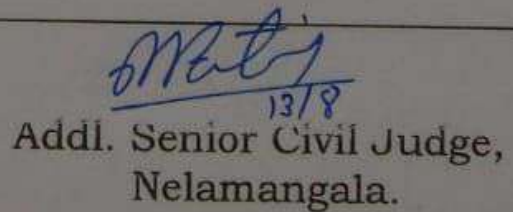 13/8
Addl. Senior Civil Judge,
Nelamangala.